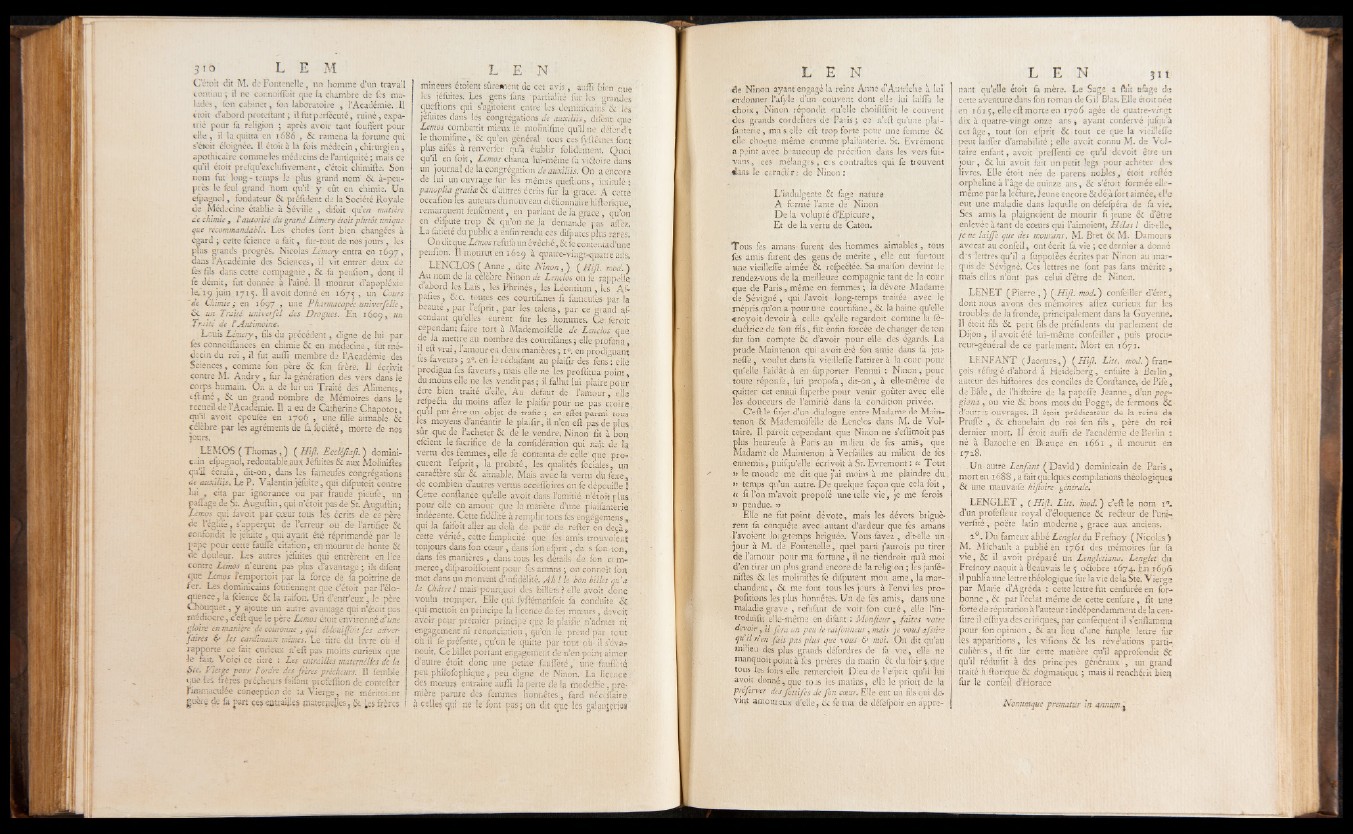 310 L E M
C'étoit dit M. de Fontenelle, un homme d'un travail
continu; il ne connoiſſoit que la chambre de ſes ma-
lades, ſon cabinet, ſon laboratoire, l'Académie. Il
étoit d'abord proteſtant; il fut perſécuté, ruiné, expa-
trié pour ſa religion; après avoir tant ſouffert pour
elle, il la quitta en 1686, & ramena la fortune qui
s'étoit éloignée. Il étoit à la fois médecin, chirurgien,
apothicaire comme les médecins de l'antiquité; mais ce
qu'il étoit preſqu'excluſivement, c'étoit chimiſte. Son
nom fut long-temps le plus grand nom & à-peu-
près le ſeul grand nom qu'il y eût en chimie. Un
eſpagnol, fondateur & préſident de la Société Royale
de Médecine établie à Séville, diſoit qu'en matière
de chimie, l'autorité du grand Lémery étoit plutôt unique
que recommandable. Les choſes ſont bien changées à cet
égard; cette ſcience a fait, ſur-tout de nos jours, les
plus grands progrès. Nicolas Lémery entra en 1697,
dans l'Académie des Sciences, il vit entrer deux de
ſes fils dans cette compagnie, & ſa penſion, dont il
ſe démit, fut donnée à l'aîné. Il mourut d'apopléxie
le 19 juin 1715. Il avoit donné en 1675, un Cours
de Chimie; en 1697, une Pharmacopée univerſelle,
& un Traité univerſel des Drogues. En 1609, un
Traité de l'Antimoine.
Louis Lémery, fils du précédent, digne de lui par
ſes connoiſſances en chimie & en médecine, fut mé-
decin du roi, il fut auſſi membre de l'Académie des
Sciences, comme ſon père & ſon frère. Il écrivit
contre M. Andry, ſur la génération des vers dans le
corps humain. On a de lui un Traité des Aliments,
eſtimé, & un grand nombre de Mémoires dans le
recueil de l'Académie. Il a eu de Catherine Chapotot,
qu'il avoit épouſée en 1706, une fille aimable &
célèbre par les agrémens de ſa ſociété, morte de nos
jours.
LEMOS (Thomas,) (Hiſt. Eccléſiaſt.) domini-
cain eſpagnol, redoutable aux Jéſuites & aux Moliniſtes
qu'il écraſa, dit-on, dans les fameuſes congrégations
de auxiliis. Le P. Valentin jéſuite, qui diſputoit contre
lui, cita par ignorance ou par fraude pieuſe, un
paſſage de St. Auguſtin, qui n'étoit pas de St. Auguſtin;
Lemos qui ſavoit par cœur tous les écrits de ce père
de l'égliſe, s'apperçut de l'erreur ou de l'artifice &
confondit le jéſuite, qui ayant été réprimandé par le
pape pour cette fauſſe citation, en mourut de honte &
de douleur. Les autres jéſuites qui entrèrent en lice
contre Lemos n'eurent pas plus d'avantage; ils diſent
que Lemos l'emportoit par la force de ſa poitrine de
fer. Les dominicains ſoutiennent que c'étoit par l'élo-
quence, la ſcience & la raiſon. Un d'entr'eux, le père
Chouquet, y ajoute un autre avantage qui n'étoit pas
médiocre, c'eſt que le père Lemos étoit environné d'une
gloire en manière de couronne, qui éblouiſſoit ſes adver-
ſaires & les cardinaux mêmes. Le titre du livre où il
rapporte ce fait curieux n'eſt pas moins curieux que
le fait. Voici ce titre : Les entrailles maternelles de la
Ste. Vierge pour l'ordre des frères prêcheurs. Il ſemble
que les frères prêcheurs faiſant profeſſion de conteſter
l'immaculée conception de la Vierge, ne méritoient
guère de ſa part ces entrailles maternelles, & les frères
L E N
mineurs étoient ſûrement de cet avis, auſſi bien que
les jéſuites. Les gens ſans partialité ſur les grandes
queſtions qui s'agitoient entre les dominicains & les
jéſuites dans les congrégations de auxiliis, diſent que
Lemos combattit mieux le moliniſme qu'il ne défendit
le thomiſme, & qu'en général tous ces ſyſtêmes ſont
plus aiſés à renverſer qu'à établir ſolidement. Quoi
qu'il en ſoit, Lemos chanta lui-même ſa victoire dans
un journal de la congrégation de auxiliis. On a encore
de lui un ouvrage ſur les mêmes queſtions, intitulé :
panoplia gratiæ & d'autres écrits ſur la grace. A cette
occaſion les auteurs du nouveau dictionnaire hiſtorique,
remarquent ſenſément, en parlant de la grace, qu'on
en diſpute trop & qu'on ne la demande pas aſſez.
La ſatiété du public a enfin rendu ces diſputes plus rares.
On dit que Lemos refuſa un évêché, & ſe contenta d'une
penſion. Il mourut en 1629 à quatre-vingt-quatre ans.
LENCLOS (Anne, dite Ninon,) (Hiſt. mod.)
Au nom de la célèbre Ninon de Lenclos on ſe rappelle
d'abord les Laïs, les Phrinés, les Léontium, les Aſ-
paſies, &c. toutes ces courtiſanes ſi fameuſes par la
beauté, par l'eſprit, par les talens, par ce grand aſ-
cendant qu'elles eurent ſur les hommes. Ce ſeroit
cependant faire tort à Mademoiſelle de Lenclos que
de la mettre au nombre des courtiſanes; elle profana,
il eſt vrai, l'amour en deux manières; 1°. en prodiguant
ſes faveurs; 2°. en le réduiſant au plaiſir des ſens; elle
prodigua ſes faveurs, mais elle ne les proſtitua point,
du moins elle ne les vendit pas; il falloit lui plaire pour
être bien traité d'elle. Au défaut de l'amour, elle
reſpecta du moins aſſez le plaiſir pour ne pas croire
qu'il pût être un objet de trafic; en effet parmi tous
les moyens d'anéantir le plaiſir, il n'en eſt pas de plus
ſûr que de l'acheter & de le vendre. Ninon fit à bon
eſcient le ſacrifice de la conſidération qui naît de la
vertu des femmes, elle ſe contenta de celle que pro-
curent l'eſprit, la probité, les qualités ſociales, un
caractère ſûr & aimable. Mais avec la vertu du ſexe,
de combien d'autres vertus acceſſoires on ſe dépouille!
Cette conſtance qu'elle avoit dans l'amitié n'étoit plus
pour elle en amour que la matière d'une plaiſanterie
indécente. Cette fidélité à remplir tous ſes engagemens,
qui la faiſoit aller au-delà de peur de reſter en deçà,
cette vérité, cette ſimplicité que ſes amis trouvoient
toujours dans ſon cœur, dans ſon eſprit, dans ſon ton,
dans ſes manières, dans tous les détails de ſon com-
merce, diſparoiſſoient pour ſes amans; on connoît ſon
mot dans un moment d'infidélité. Ah! le bon billet qu'a
la Châtre! mais pourquoi des billets? elle avoit donc
voulu tromper. Elle qui ſyſtématiſoit ſa conduite &
qui mettoit en principe la licence de ſes mœurs, devoit
avoir pour premier principe que le plaiſir n'admet ni
engagement ni renonciation, qu'on le prend par tout
où il ſe préſente, qu'on le quitte par tout où il s'éva-
nouit. Ce billet portant engagement de n'en point aimer
d'autre étoit donc une petite fauſſeté, une fauſſeté
peu philoſophique, peu digne de Ninon. La licence
des mœurs entraîne auſſi la perte de la modeſtie, pre-
mière parure des femmes honnêtes, fard néceſſaire
à celles qui ne le ſont pas; on dit que les galanteries
L E N
de Ninon ayant engagé la reine Anne d'Autriche à lui
ordonner l'aſyle d'un couvent dont elle lui laiſſa le
choix, Ninon répondit qu'elle choiſiſſoit le couvent
des grands cordeliers de Paris; ce n'eſt qu'une plai-
ſanterie, mais elle eſt trop forte pour une femme &
elle choque même comme plaiſanterie. St. Evrémont
a peint avec beaucoup de préciſion dans les vers ſui-
vans, ces mélanges, ces contraſtes qui ſe trouvent
dans le caractère de Ninon :
L'indulgente & ſage nature
A formé l'ame de Ninon
De la volupté d'Epicure,
Et de la vertu de Caton.
Tous ſes amans furent des hommes aimables, tous
ſes amis furent des gens de mérite, elle eut ſurtout
une vieilleſſe aimée & reſpectée. Sa maiſon devint le
rendez-vous de la meilleure compagnie tant de la cour
que de Paris, même en femmes; la dévote Madame
de Sévigné, qui l'avoit long-temps traitée avec le
mépris qu'on a pour une courtiſane, & la haine qu'elle
croyoit devoir à celle qu'elle regardoit comme la ſé-
ductrice de ſon fils, fut enfin forcée de changer de ton
ſur ſon compte & d'avoir pour elle des égards. La
prude Maintenon qui avoit été ſon amie dans ſa jeu-
neſſe, voulut dans ſa vieilleſſe l'attirer à la cour pour
qu'elle l'aidât à en ſupporter l'ennui : Ninon, pour
toute réponſe, lui propoſa, dit-on, à elle-même de
quitter cet ennui ſuperbe pour venir goûter avec elle
les douceurs de l'amitié dans la condition privée.
C'eſt le ſujet d'un dialogue entre Madame de Main-
tenon & Mademoiſelle de Lenclos dans M. de Vol-
taire. Il paroît cependant que Ninon ne s'eſtimoit pas
plus heureuſe à Paris au milieu de ſes amis, que
Madame de Maintenon à Verſailles au milieu de ſes
ennemis, puiſqu'elle écrivoit à St. Evremont : « Tout
» le monde me dit que j'ai moins à me plaindre du
» temps qu'un autre. De quelque façon que cela ſoit,
» ſi l'on m'avoit propoſé une telle vie, je me ſerois
» pendue. »
Elle ne fut point dévote, mais les dévots briguè-
rent ſa conquête avec autant d'ardeur que ſes amans
l'avoient long-temps briguée. Vous ſavez, dit-elle un
jour à M. de Fontenelle, quel parti j'aurois pu tirer
de l'amour pour ma fortune, il ne tiendroit qu'à moi
d'en tirer un plus grand encore de la religion; les janſé-
niſtes & les moliniſtes ſe diſputent mon ame, la mar-
chandent, & me font tous les jours à l'envi les pro-
poſitions les plus honnêtes. Un de ſes amis, dans une
maladie grave, refuſant de voir ſon curé, elle l'in-
troduiſit elle-même en diſant : Monſieur, faites votre
devoir, il fera un peu le raiſonneur, mais je vous aſſure
qu'il n'en ſait pas plus que vous & moi. On dit qu'au
milieu des plus grands déſordres de ſa vie, elle ne
manquoit point à ſes prières du matin & du ſoir, que
tous les ſoirs elle remercioit Dieu de l'eſprit qu'il lui
avoit donné, que tous les matins, elle le prioit de la
préſerver des ſottiſes de ſon cœur. Elle eut un fils qui de-
vint amoureux d'elle, & ſe tua de déſeſpoir en appre-
L E N 311
nant qu'elle étoit ſa mère. Le Sage a fait uſage de
cette aventure dans ſon roman de Gil Blas. Elle étoit née
en 1615, elle eſt morte en 1706 agée de quatre-vingt
dix à quatre-vingt onze ans, ayant conſervé juſqu'à
cet âge, tout ſon eſprit & tout ce que la vieilleſſe
peut laiſſer d'amabilité; elle avoit connu M. de Vol-
taire enfant, avoit preſſenti ce qu'il devoit être un
jour, & lui avoit fait un petit legs pour acheter des
livres. Elle étoit née de parens nobles, étoit reſtée
orpheline à l'âge de quinze ans, & s'étoit formée elle-
même par la lecture. Jeune encore & déjà fort aimée, elle
eut une maladie dans laquelle on déſeſpéra de ſa vie.
Ses amis la plaignoient de mourir ſi jeune & d'être
enlevée à tant de cœurs qui l'aimoient, Hélas! dit-elle,
je ne laiſſe que des mourans. M. Bret & M. Damours
avocat au conſeil, ont écrit ſa vie; ce dernier a donné
des lettres qu'il a ſuppoſées écrites par Ninon au mar-
quis de Sévigné. Ces lettres ne ſont pas ſans mérite,
mais elles n'ont pas celui d'être de Ninon.
LENET (Pierre,) (Hiſt. mod.) conſeiller d'état,
dont nous avons des mémoires aſſez curieux ſur les
troubles de la fronde, principalement dans la Guyenne.
Il étoit fils & petit fils de préſidents au parlement de
Dijon, il avoit été lui-même conſeiller, puis procu-
reur-général de ce parlement. Mort en 1671.
LENFANT (Jacques,) (Hiſt. Litt. mod.) fran-
çois réfugié d'abord à Heidelberg, enſuite à Berlin,
auteur des hiſtoires des conciles de Conſtance, de Piſe,
de Bâle, de l'hiſtoire de la papeſſe Jeanne, d'un pog-
giana, ou vie & bons mots du Pogge, de ſermons &
d'autres ouvrages. Il étoit prédicateur de la reine de
Pruſſe, & chapelain du roi ſon fils, père du roi
dernier mort. Il étoit auſſi de l'académie de Berlin :
né à Bazoche en Bauſſe en 1661, il mourut en
1728.
Un autre Lenfant (David) dominicain de Paris,
mort en 1688, a fait quelques compilations théologiques
& une mauvaiſe hiſtoire générale.
LENGLET, (Hiſt. Litt. mod.) c'eſt le nom 1°.
d'un profeſſeur royal d'éloquence & recteur de l'uni-
verſité, poëte latin moderne, grace aux anciens.
2°. Du fameux abbé Lenglet du Freſnoy (Nicolas)
M. Michault a publié en 1761 des mémoires ſur ſa
vie, & il avoit préparé un Lengletiana. Lenglet du
Freſnoy naquit à Beauvais le 5 octobre 1674. En 1696
il publia une lettre théologique ſur la vie de la Ste. Vierge
par Marie d'Agréda : cette lettre fut cenſurée en ſor-
bonne, & par l'éclat même de cette cenſure, fit une
ſorte de réputation à l'auteur : indépendamment de la cen-
ſure il eſſuya des critiques, par conſéquent il s'enflamma
pour ſon opinion, & au lieu d'une ſimple lettre ſur
les apparitions, les viſions & les révélations parti-
culières, il fit ſur cette matière qu'il approfondit &
qu'il réduiſit à des principes généraux, un grand
traité hiſtorique & dogmatique; mais il renchérit bien
ſur le conſeil d'Horace
Nonumque prematur in annum,